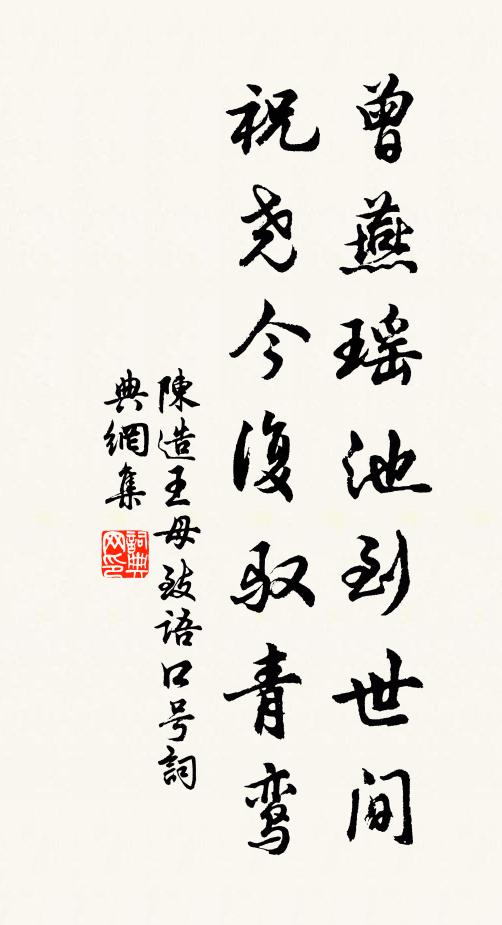 曾燕瑶池到世间
祝尧今復驭青鸾
陳造王母致语口号詞
典網集
詞典网印